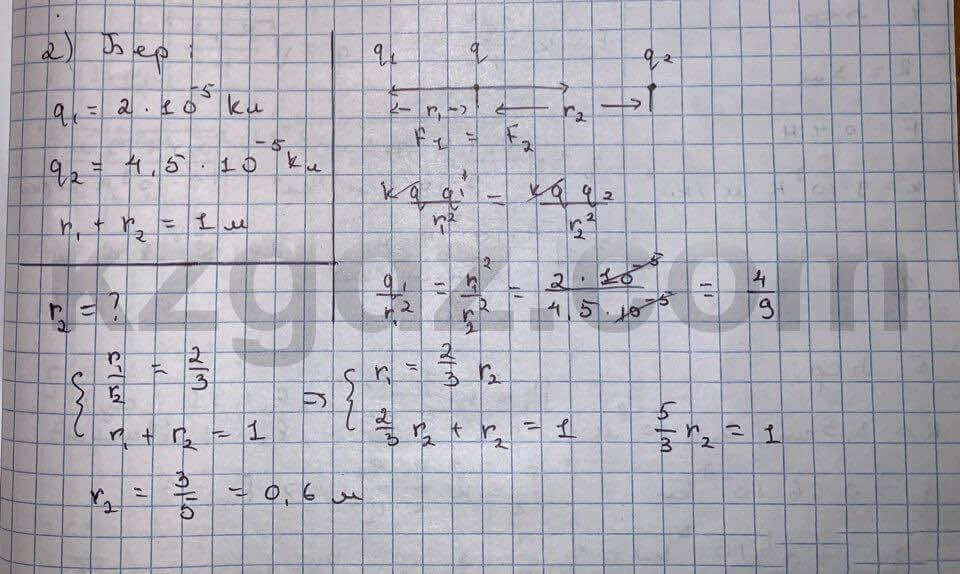 2) Бер :
q₁ = 2 · 10⁻⁵ кл
q₂ = 4,5 · 10⁻⁵ кл
r₁ + r₂ = 1 м
r₂ = ?
q₁ q q₂
← r₁ → ← r₂ →
F₁ = F₂
kq q₁ / r₁² = kq q₂ / r₂²
q₁ / r₁² = r₁² / r₂² = 2 · 10⁻⁵ / 4,5 · 10⁻⁵ = 4/9
{ r₁/r₂ = 2/3 ⇒ { r₁ = 2/3 r₂
r₁ + r₂ = 1 2/3 r₂ + r₂ = 1 5/3 r₂ = 1
r₂ = 3/5 = 0,6 м
kzgoz.com